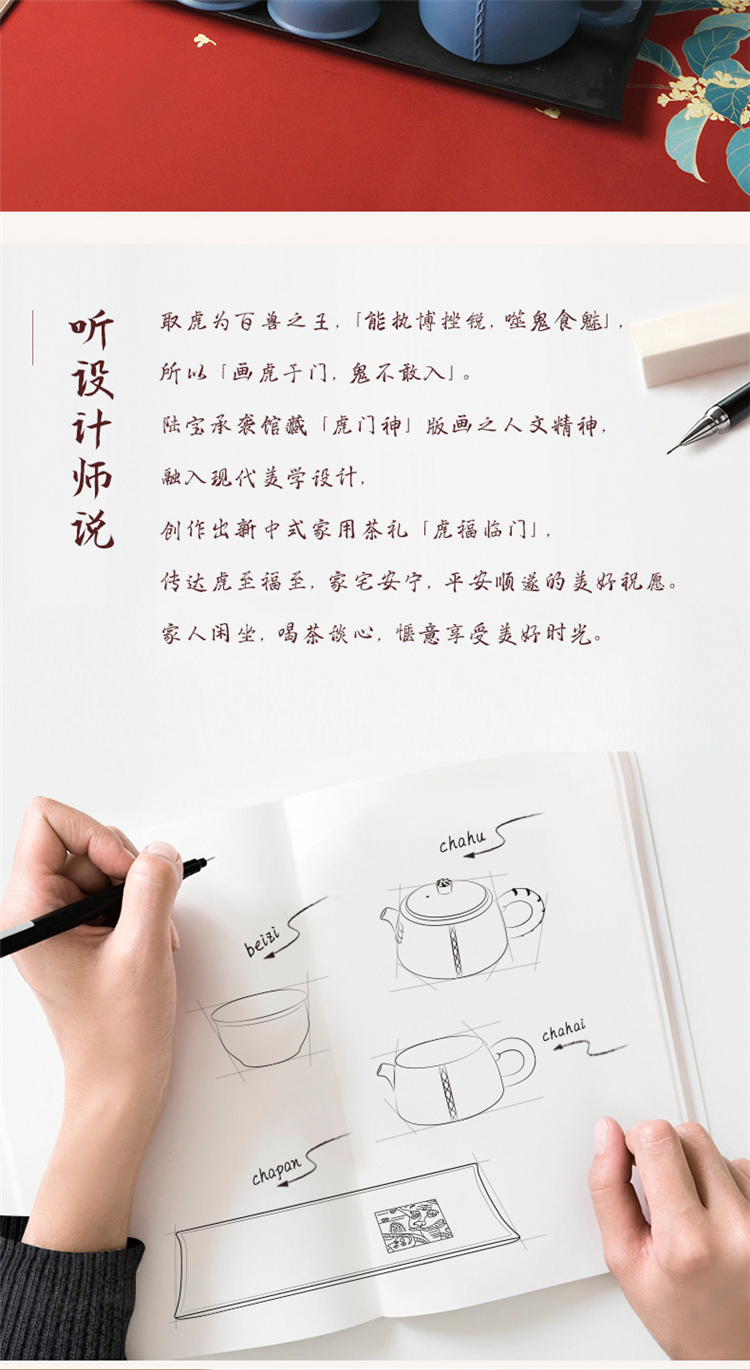 听设计师说
取虎为百兽之王，「能执博挫锐，噬鬼食魅」，
所以「画虎于门，鬼不敢入」。
陆宝承袭馆藏「虎门神」版画之人文精神，
融入现代美学设计，
创作出新中式家用茶礼「虎福临门」，
传达虎至福至，家宅安宁，平安顺遂的美好祝愿。
家人闲坐，喝茶谈心，惬意享受美好时光。
chahu
beizi
chahai
chapan